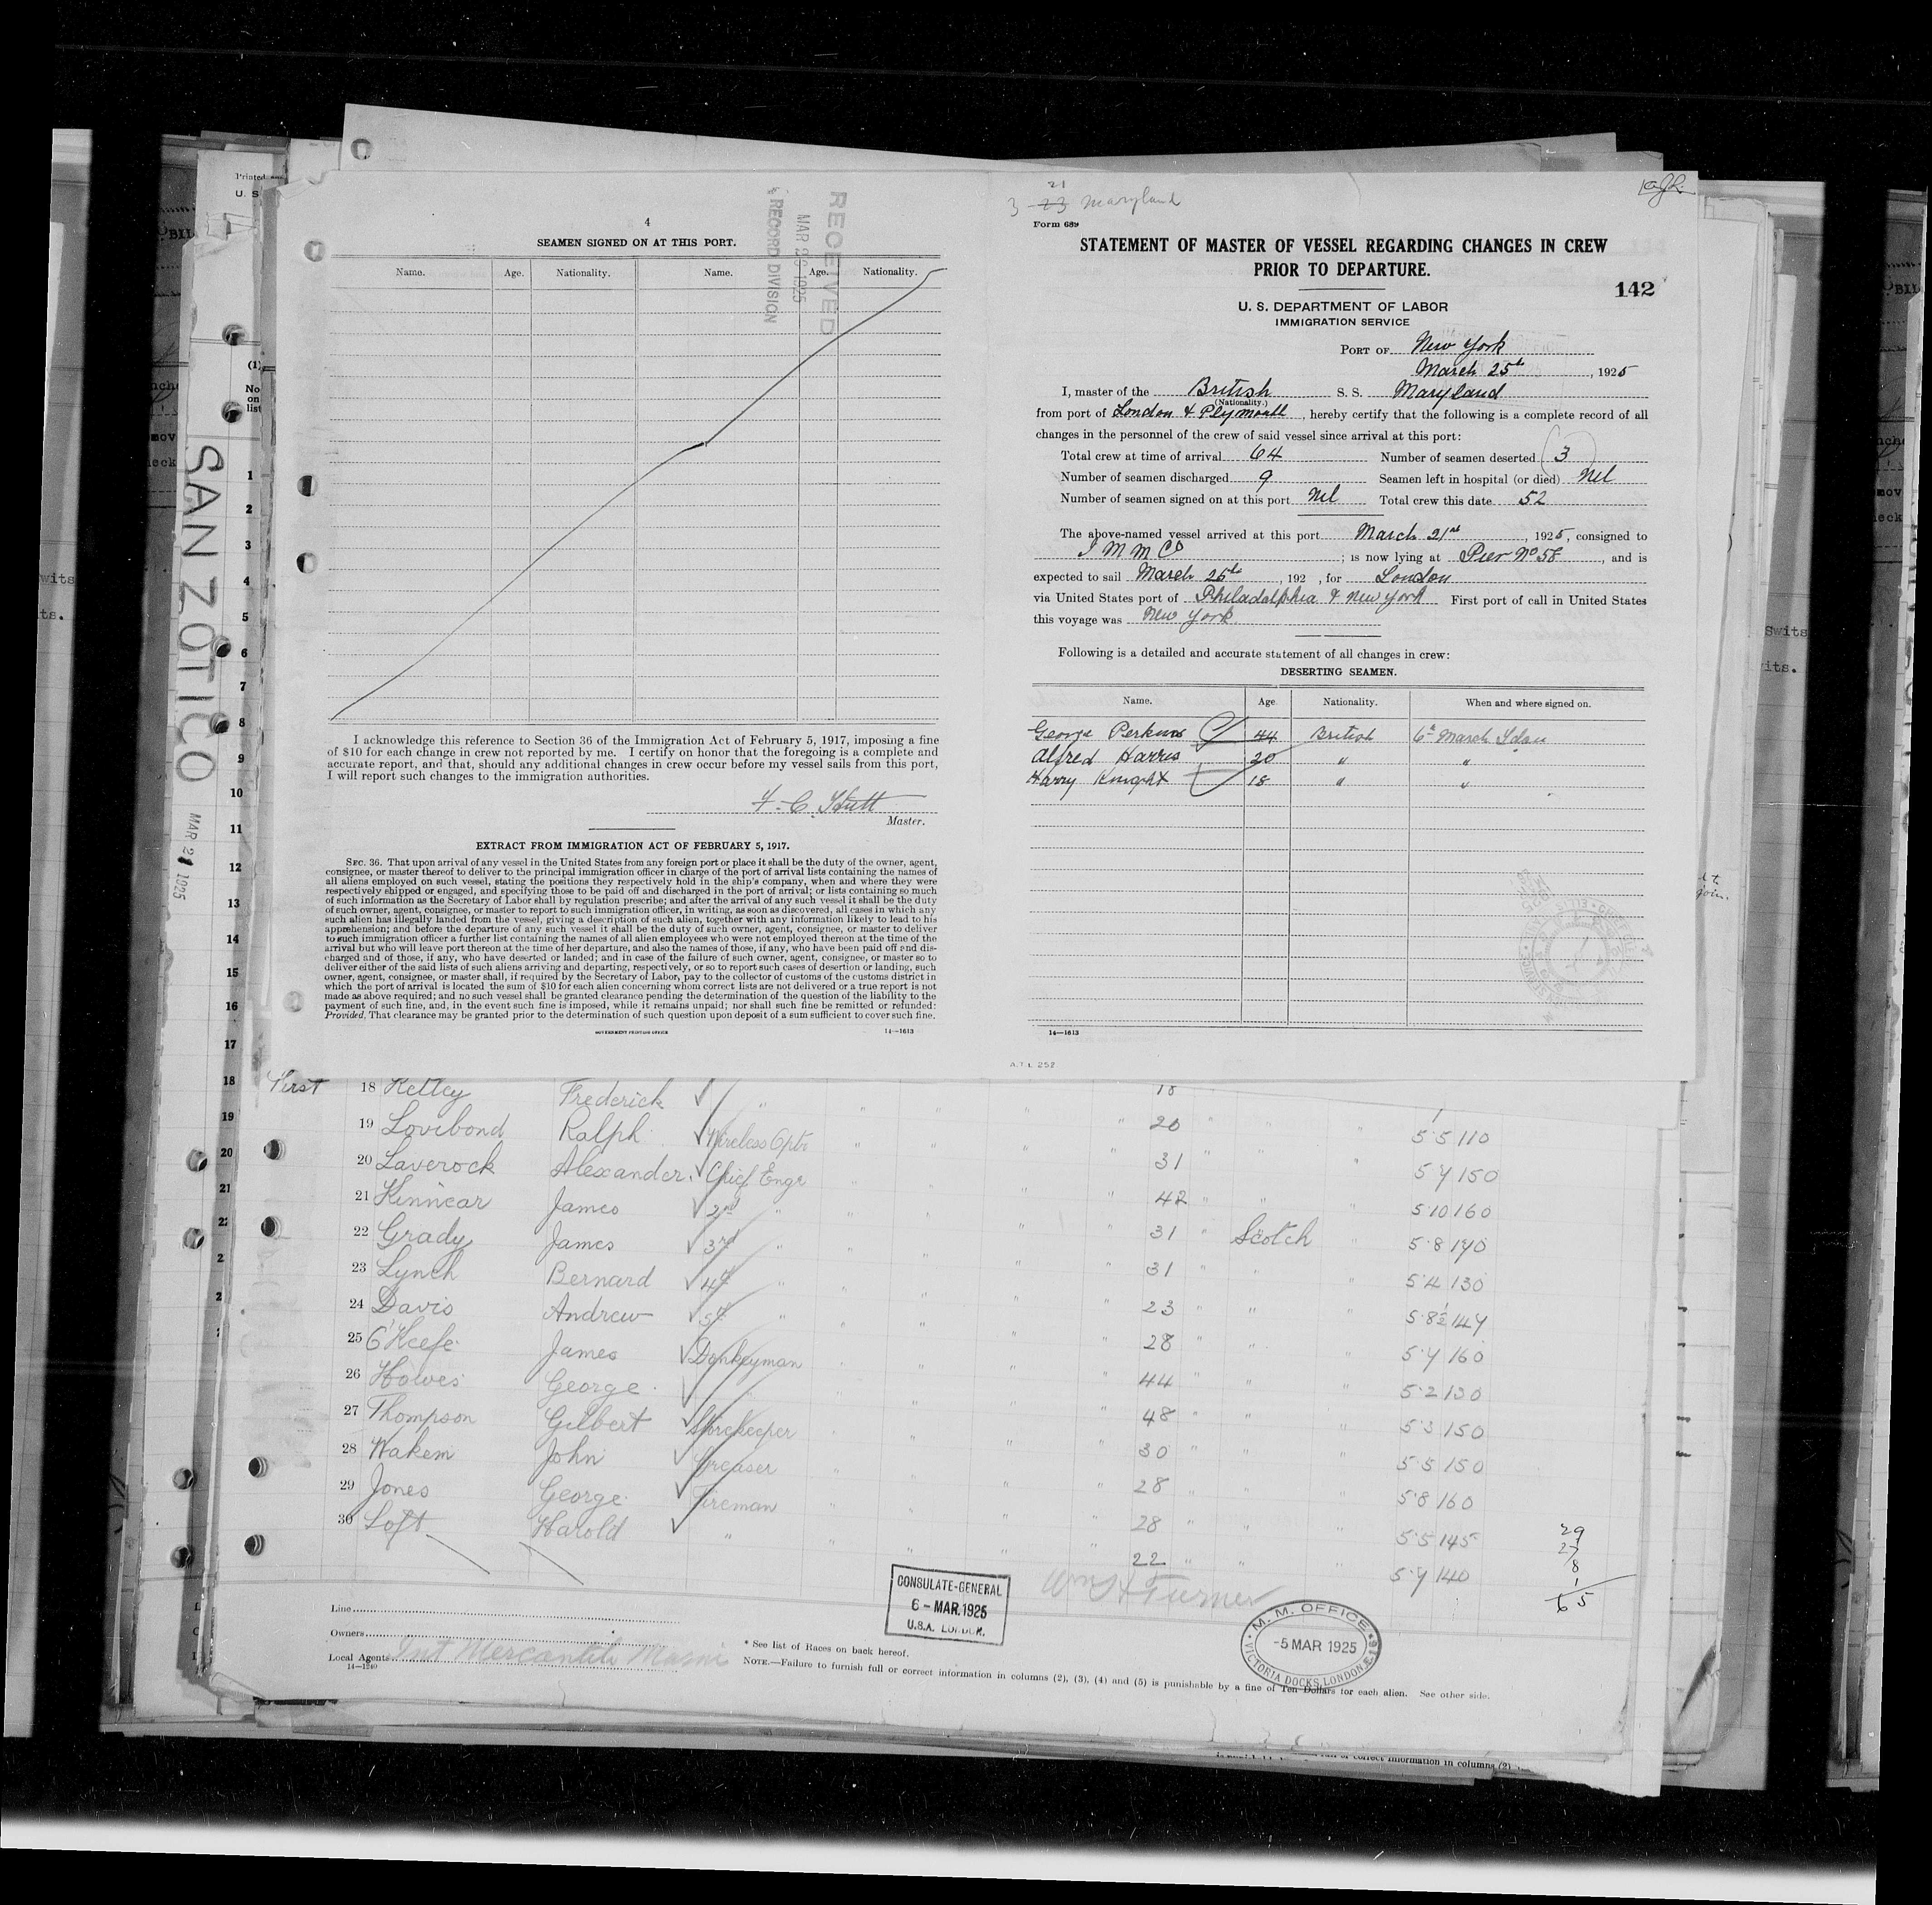 4
SEAMEN SIGNED ON AT THIS PORT.
Name. Age. Nationality. Name. Age. Nationality.
RECEIVED
MAR 1925
RECORD DIVISION
I acknowledge this reference to Section 36 of the Immigration Act of February 5, 1917, imposing a fine
of $10 for each change in crew not reported by me. I certify on honor that the foregoing is a complete and
accurate report, and that, should any additional changes in crew occur before my vessel sails from this port,
I will report such changes to the immigration authorities.
Master.
EXTRACT FROM IMMIGRATION ACT OF FEBRUARY 5, 1917.
SEC. 36. That upon arrival of any vessel in the United States from any foreign port or place it shall be the duty of the owner, agent,
consignee, or master thereof to deliver to the principal immigration officer in charge of the port of arrival lists containing the names of
all aliens employed on such vessel, stating the positions they respectively hold in the ship's company, when and where they were
respectively shipped or engaged, and specifying those to be paid off and discharged in the port of arrival; or lists containing so much
of such information as the Secretary of Labor shall by regulation prescribe; and after the arrival of any such vessel it shall be the duty
of such owner, agent, consignee, or master to report to such immigration officer, in writing, as soon as discovered, all cases in which any
such alien has illegally landed from the vessel, giving a description of such alien, together with any information likely to lead to his
apprehension; and before the departure of any such vessel it shall be the duty of such owner, agent, consignee, or master to deliver
to such immigration officer a further list containing the names of all alien employees who were not employed thereon at the time of the
arrival but who will leave port thereon at the time of her departure, and also the names of those, if any, who have been paid off and dis-
charged and of those, if any, who have deserted or landed; and in case of the failure of such owner, agent, consignee, or master so to
deliver either of the said lists of such aliens arriving and departing, respectively, or so to report such cases of desertion or landing, such
owner, agent, consignee, or master shall, if required by the Secretary of Labor, pay to the collector of customs of the customs district in
which the port of arrival is located the sum of $10 for each alien concerning whom correct lists are not delivered or a true report is not
made as above required; and no such vessel shall be granted clearance pending the determination of the question of the liability to the
payment of such fine, and, in the event such fine is imposed, while it remains unpaid; nor shall such fine be remitted or refunded:
Provided, That clearance may be granted prior to the determination of such question upon deposit of a sum sufficient to cover such fine.
GOVERNMENT PRINTING OFFICE 14—1613
21
3 23 Maryland
Form 689
STATEMENT OF MASTER OF VESSEL REGARDING CHANGES IN CREW
PRIOR TO DEPARTURE.
142
U. S. DEPARTMENT OF LABOR
IMMIGRATION SERVICE
PORT OF New York
March 25th, 1925
I, master of the British S. S. Maryland
(Nationality.)
from port of London & Plymouth, hereby certify that the following is a complete record of all
changes in the personnel of the crew of said vessel since arrival at this port:
Total crew at time of arrival 64 Number of seamen deserted 3
Number of seamen discharged 9 Seamen left in hospital (or died) Nil
Number of seamen signed on at this port Nil Total crew this date 52
The above-named vessel arrived at this port March 21st, 1925, consigned to
I M M Co; is now lying at Pier No 58, and is
expected to sail March 25th, 192 , for London
via United States port of Philadalphia & New York First port of call in United States
this voyage was New York
Following is a detailed and accurate statement of all changes in crew:
DESERTING SEAMEN.
Name. Age Nationality. When and where signed on.
George Perkins 44 British 6th March Ldon
Alfred Harris 20 " "
Harry Knight 18 " "
14—1613
A.T.L. 257
SAN ZOTICO MAR 21 1925
First 18 Kelley Frederick " 18
19 Lovibond Ralph Wireless Optr 20 5·5 110
20 Laverock Alexander Chief Engr 31 5·7 150
21 Kinnear James 2nd " 42 5·10 160
22 Grady James 3rd " 31 Scotch 5·8 170
23 Lynch Bernard 4th " 31 5·4 130
24 Davis Andrew 5th " 23 5·8½ 147
25 O'Keefe James Donkeyman 28 5·7 160
26 Howes George 44 5·2 130
27 Thompson Gilbert Storekeeper 48 5·3 150
28 Wakem John Greaser 30 5·5 150
29 Jones George Fireman 28 5·8 160
30 Loft Harold " 28 5·5 145
22 5·7 140
29
27
8
1
65
CONSULATE-GENERAL
6 - MAR. 1925
U.S.A. LONDON.
Wm H Turner
M. M. OFFICE
-5 MAR 1925
VICTORIA DOCKS, LONDON, E.16
Line
Owners
Local Agents Int Mercantile Marine
14—1240
* See list of Races on back hereof.
NOTE.—Failure to furnish full or correct information in columns (2), (3), (4) and (5) is punishable by a fine of Ten Dollars for each alien. See other side.